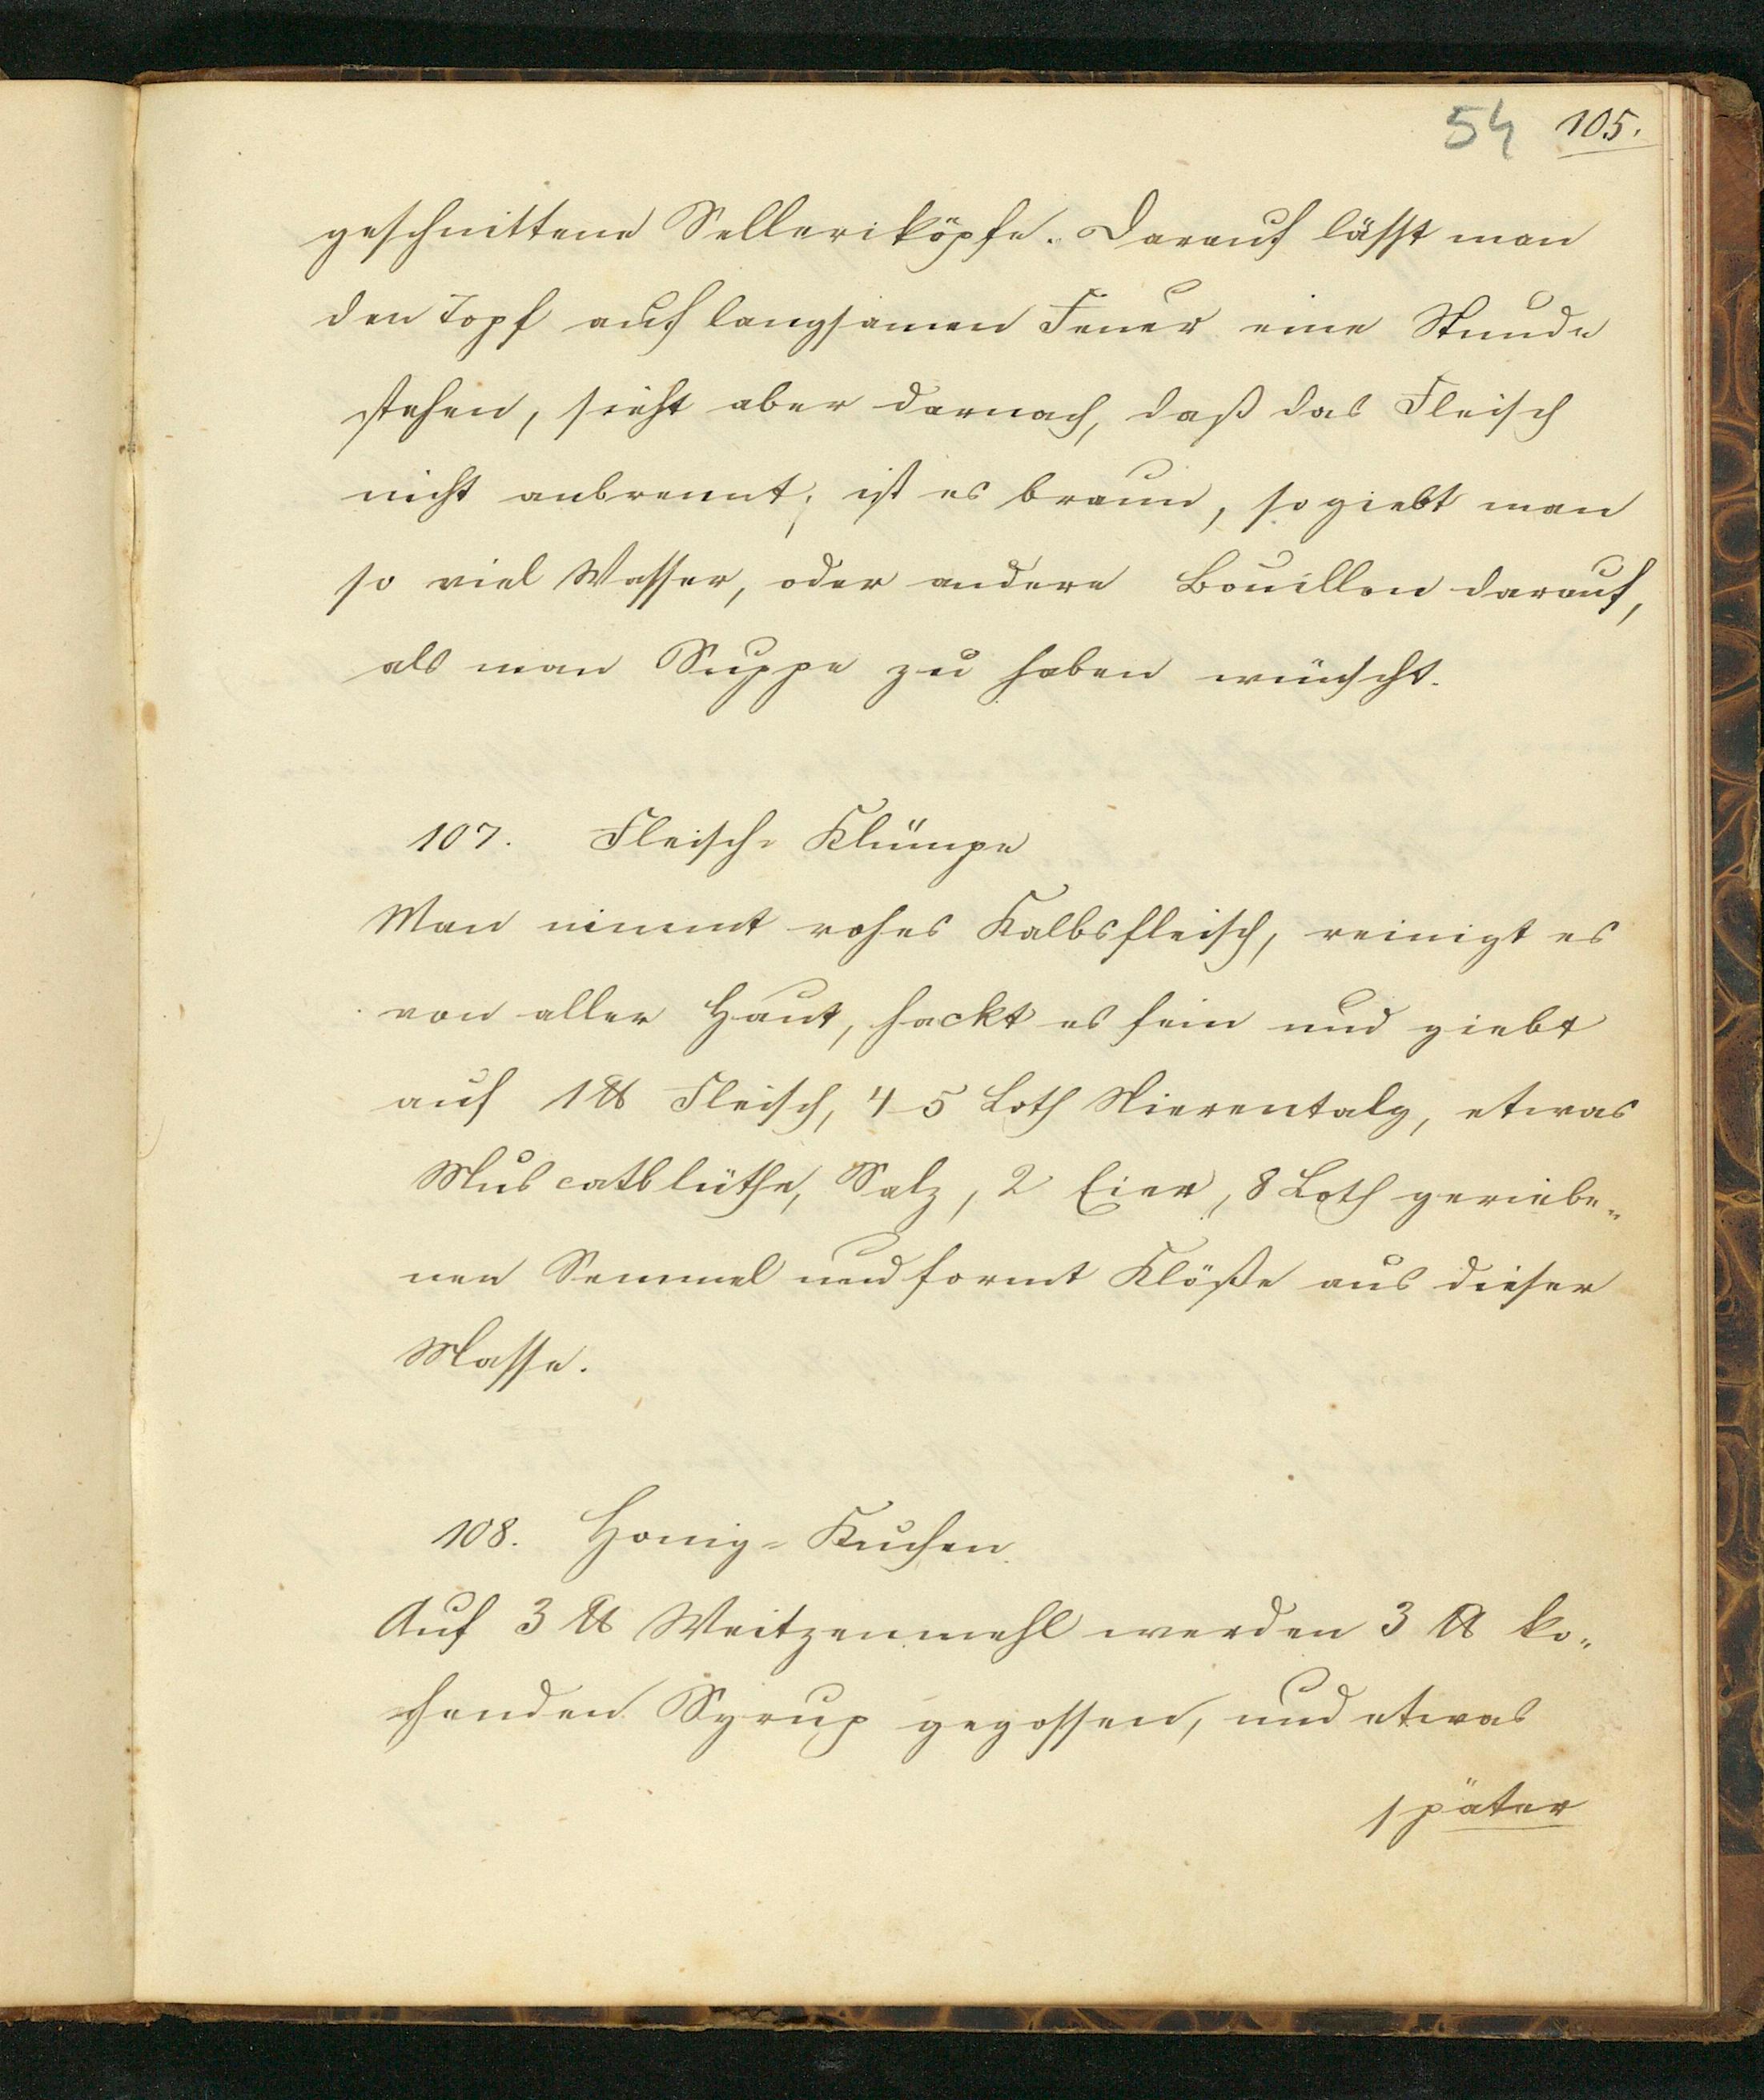 54 105.
geschnittene Selleriköpfe. Darauf lässt man
den Topf auf langsamen Feuer eine Stunde
stehen, sieht aber darnach, daß das Fleisch
nicht anbrennt; ist es braun, so giebt man
so viel Wasser, oder andere Bouillon darauf,
als man Suppe zu haben wünscht.
107. Fleisch-Klümpe
Man nimmt rohes Kalbsfleisch, reinigt es
von aller Haut, hackt es fein und giebt
auf 1 ℔ Fleisch, 4-5 Loth Nierentalg, etwas
Muscatblüthe, Salz, 2 Eier, 8 Loth geriebe-
nen Semmel und formt Klöße aus dieser
Masse.
108. Honig-Kuchen.
Auf 3 ℔ Weitzenmehl werden 3 ℔ ko-
chenden Syrup gegossen, und etwas
später